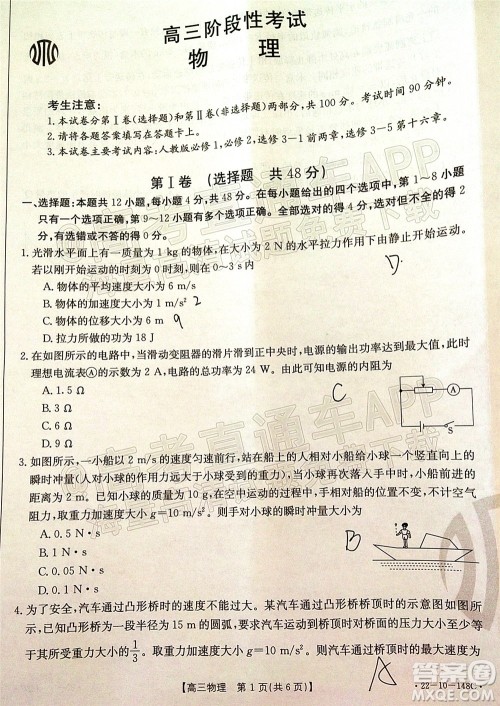 高三阶段性考试
物 理
考生注意：
1.本试卷分第Ⅰ卷（选择题）和第Ⅱ卷（非选择题）两部分，共100分。考试时间90分钟。
2.请将各题答案填写在答题卡上。
3.本试卷主要考试内容：人教版必修1，必修2，选修3－1前两章，选修3－5第十六章。
第Ⅰ卷 （选择题 共48分）
一、选择题：本题共12小题，每小题4分，共48分。在每小题给出的四个选项中，第1～8小题
只有一个选项正确，第9～12小题有多个选项正确。全部选对的得4分，选对但不全的得2
分，有选错的得0分。
1.光滑水平面上有一质量为1 kg的物体，在大小为2 N的水平拉力作用下由静止开始运动。
若以刚开始运动的时刻为0时刻，则在0～3 s内
D.
A.物体的平均速度大小为6 m/s
B.物体的加速度大小为6 m/s 2
C.物体的位移大小为6 m 9
D.拉力所做的功为18 J
2.在如图所示的电路中，当滑动变阻器的滑片滑到正中央时，电源的输出功率最大，此时
理想电流表Ⓐ的示数为2 A，电源的总功率为24 W。则滑动变阻器的最大阻值为
A.1.5 Ω
B.3 Ω
C.6 Ω
D.9 Ω
C
3.如图所示，一小船以2 m/s的速度匀速前行，站在船上的人竖直向上抛出一质量
的小球（手对小球的作用力远大于小球受到的重力），当小球再次落入手中时，小船前进了
取重力加速度大小g＝10 m/s²。则手对小球的瞬时冲量大小为
A.0.5 N·s
B.0.4 N·s
C.0.2 N·s
D.0.1 N·s
B
4.为了安全，汽车通过凸形桥时的速度不能过大。汽车通过凸形桥桥顶时的示意图如图所
示，凸形桥桥顶部分可等效为一段半径为15 m的圆弧，要求汽车通过桥顶时对桥的压力不
能小于车重的1/3，取重力加速度大小g＝10 m/s²，则汽车通过桥顶时的最大速度为
A
【高三物理 第1页（共6页）】
·22－10－148C·